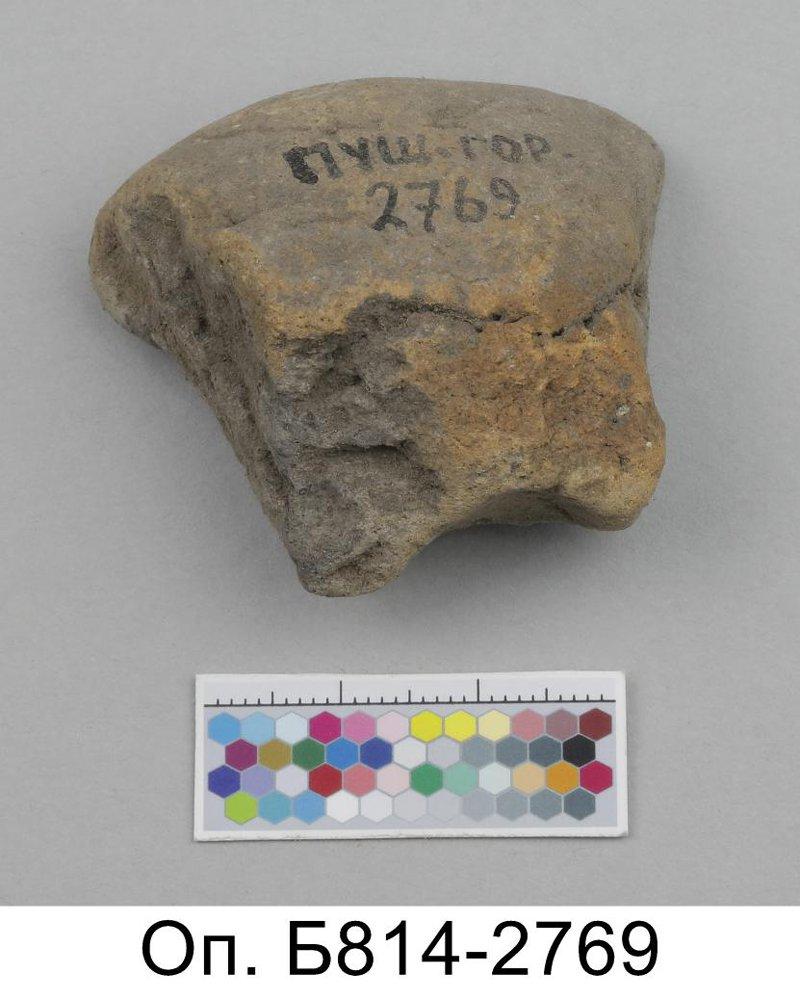 ПУШ-ГОР.
2769
Оп. Б814-2769